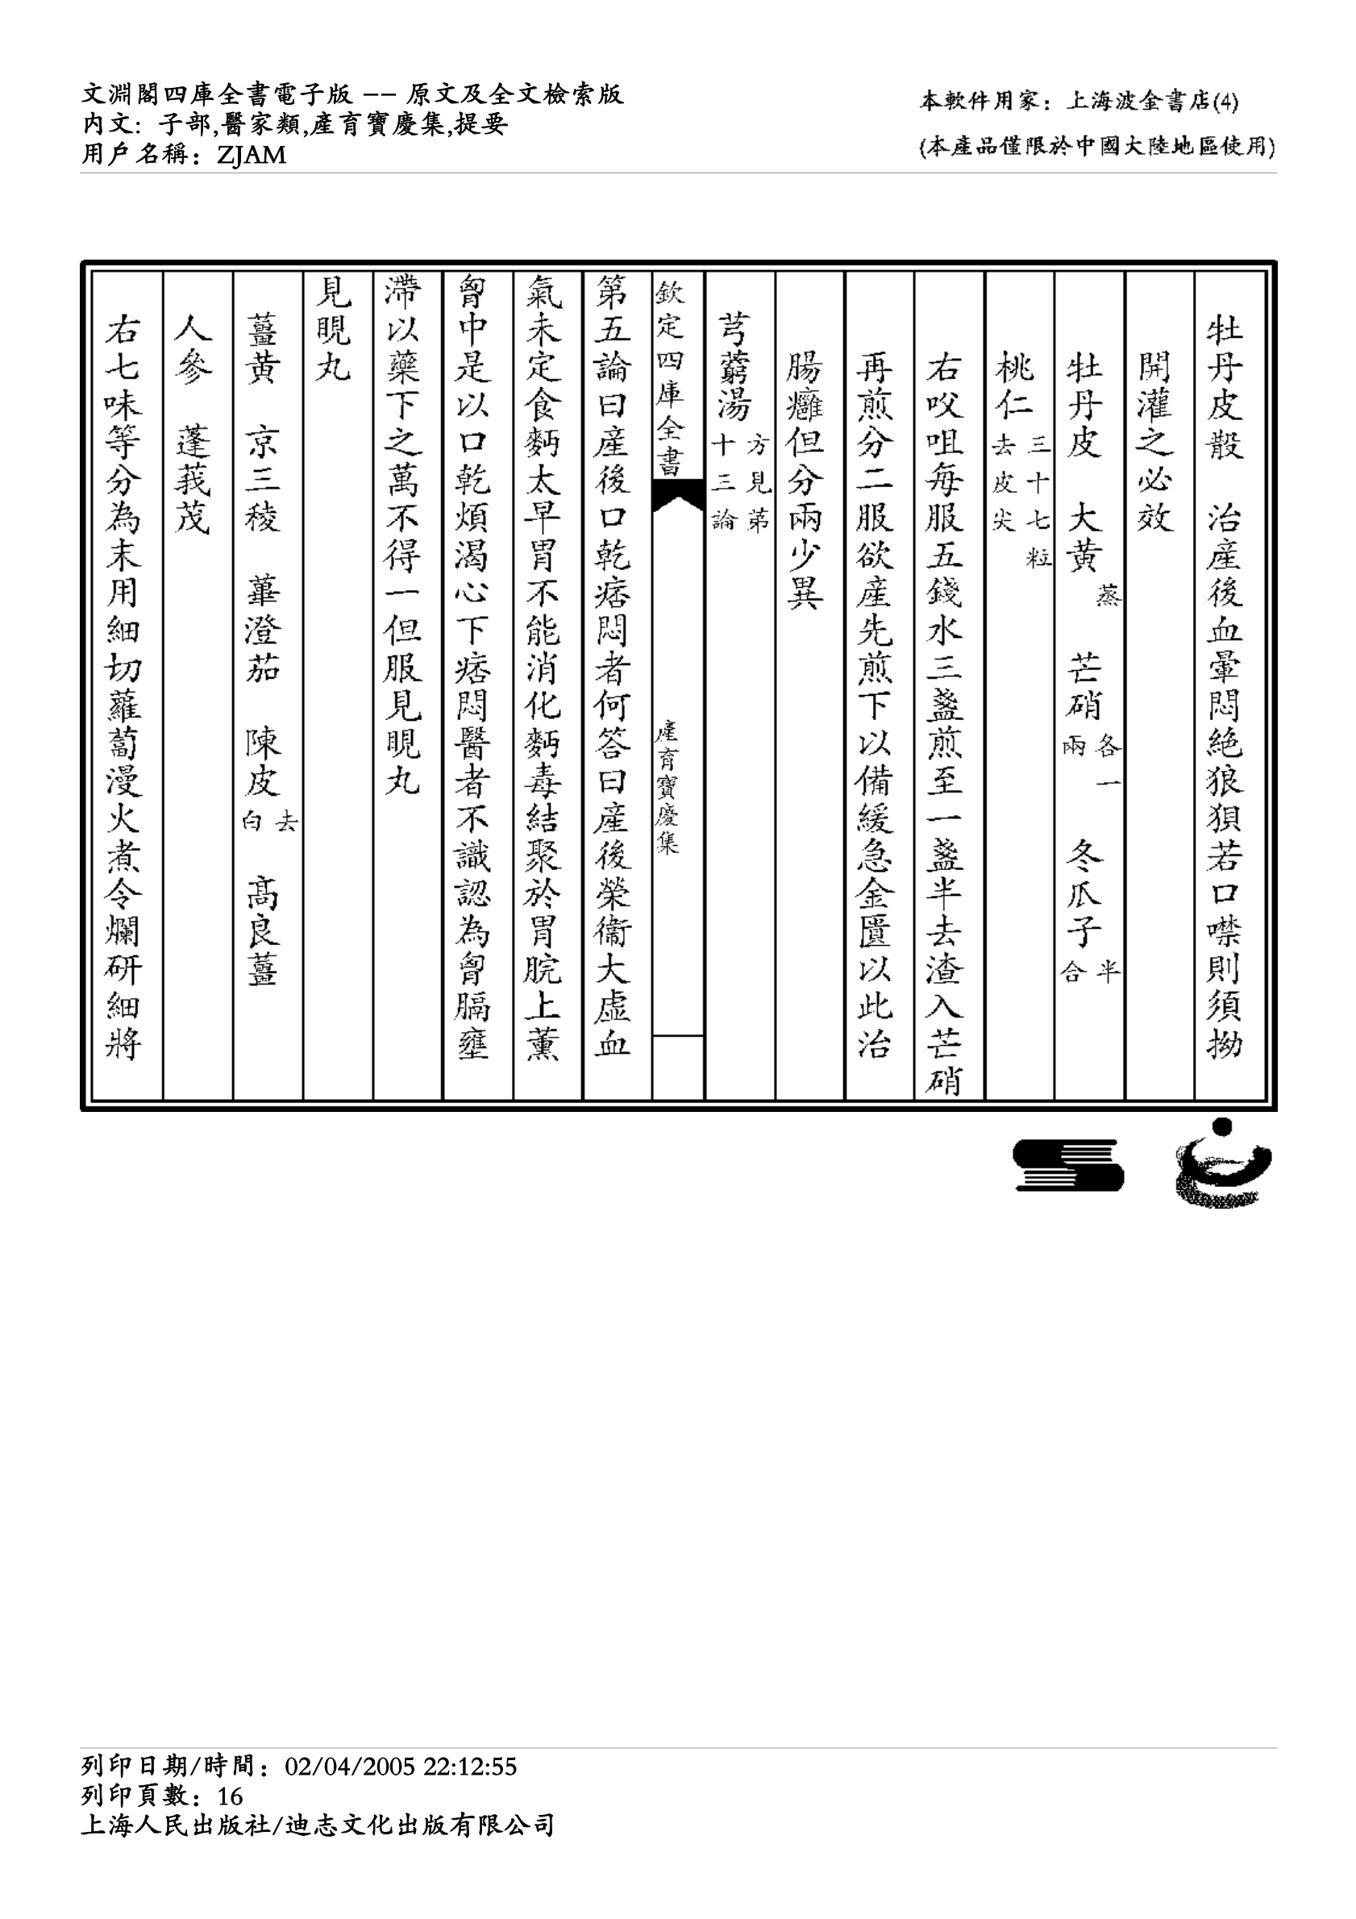 文淵閣四庫全書電子版 -- 原文及全文檢索版
内文: 子部,醫家類,產育寶慶集,提要
用戶名稱: ZJAM
本軟件用家: 上海波金書店(4)
(本產品僅限於中國大陸地區使用)
牡丹皮散 治產後血暈悶絶狼狽若口噤則須拗
開灌之必效
牡丹皮 大黃蒸 芒硝各一兩 冬瓜子半合
桃仁三十七粒去皮尖
右㕮咀每服五錢水三盞煎至一盞半去渣入芒硝
再煎分二服欲產先煎下以備緩急金匱以此治
腸癰但分兩少異
芎藭湯方見第十三論
欽定四庫全書
產育寶慶集
第五論曰產後口乾痞悶者何答曰產後榮衞大虛血
氣未定食麪太早胃不能消化麪毒結聚於胃脘上薰
胷中是以口乾煩渴心下痞悶醫者不識認為胷膈壅
滯以藥下之萬不得一但服見晛丸
見晛丸
薑黃 京三稜 蓽澄茄 陳皮去白 高良薑
人參 蓬莪茂
右七味等分為末用細切蘿蔔漫火煮令爛研細將
列印日期/時間: 02/04/2005 22:12:55
列印頁數: 16
上海人民出版社/迪志文化出版有限公司